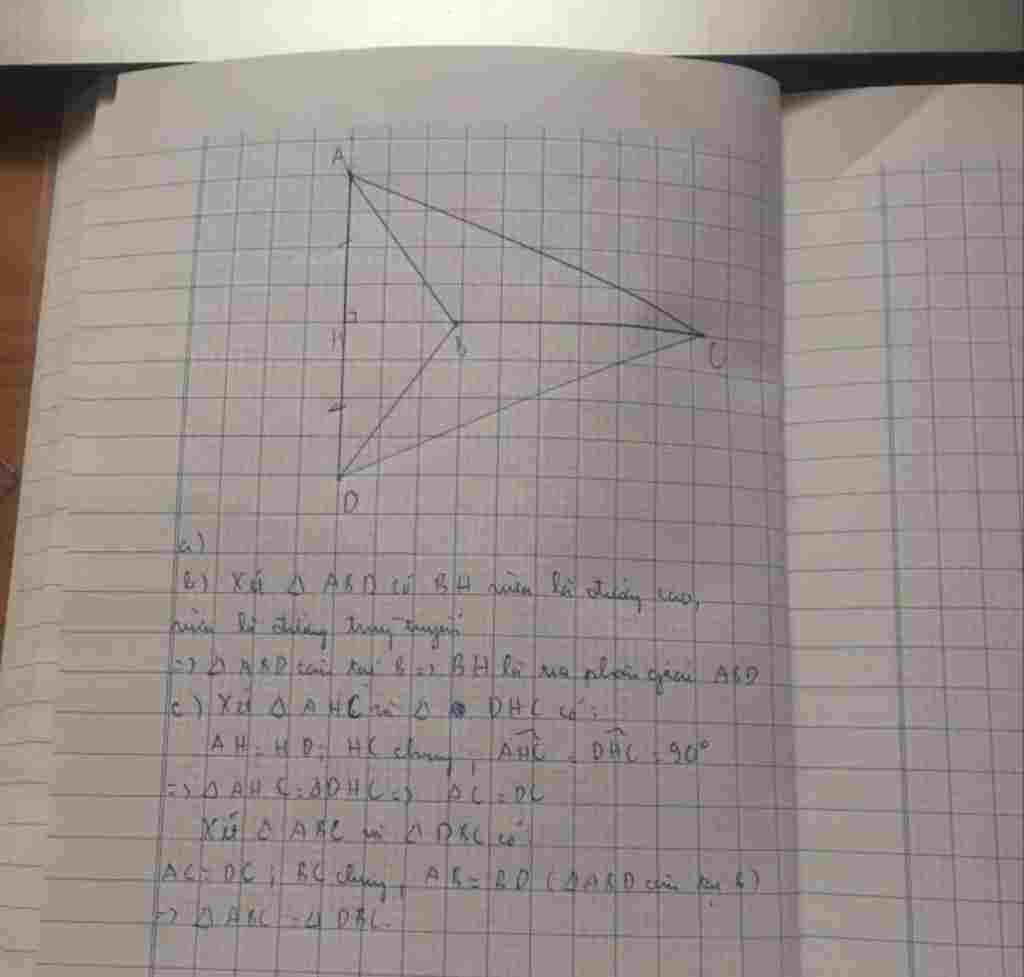 A
H
B
C
D
a)
b) Xét Δ ABD có BH vừa là đường cao,
vừa là đường trung tuyến
=> Δ ABD cân tại B => BH là tia phân giác ABD
c) Xét Δ AHC và Δ DHC có:
AH = HD; HC chung, AHC = DHC = 90°
=> Δ AHC = ΔDHC => AC = DC
Xét Δ ABC và Δ DBC có
AC = DC; BC chung, AB = BD (ΔABD cân tại B)
=> Δ ABC = Δ DBC.